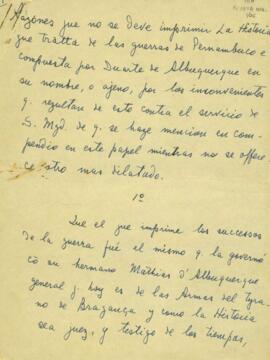 Razones que no se deve imprimir La Historia
que tratta de las guerras de Pernambuco e
compuesta por Duarte de Albuquerque en
su nombre, o ajeno, por los inconvenientes
q. resultan de esto contra el servicio de
S. Mgd. de q. se haze mencion en com-
pendio en este papel mientras no se offere-
ce otro mas dilatado.
1º
Que el que imprime los successos
de la guerra fué el mismo q. la governó
có su hermano Mathias d'Albuquerque
general q. hoy es de las Armas del tyra-
no de Bragança y como la Historia
sea juez, y testigo de los tiempos,